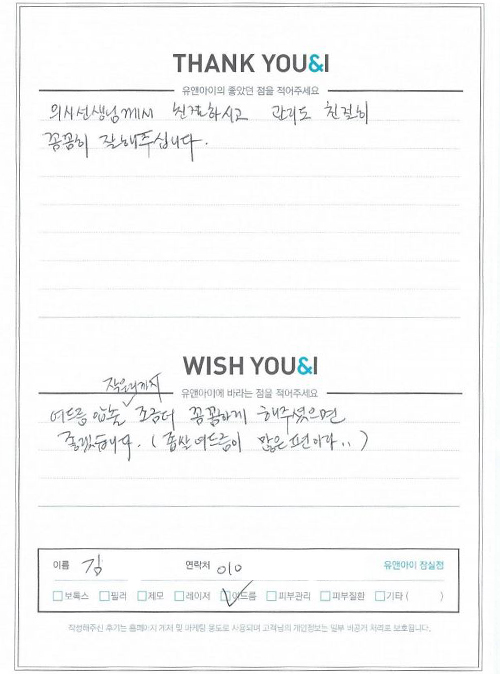 THANK YOU&I
유앤아이의 좋았던 점을 적어주세요
의사선생님께서 친절하시고 관리도 친절히
꼼꼼히 잘해주십니다.
WISH YOU&I
유앤아이에 바라는 점을 적어주세요
작은거까지
여드름 압출 조금더 꼼꼼하게 해주셨으면
좋겠습니다. (좁쌀여드름이 많은 편이라..)
이름 김 연락처 010 유앤아이 잠실점
보톡스 필러 제모 레이저 여드름 피부관리 피부질환 기타 ( )
작성해주신 후기는 홈페이지 게재 및 마케팅 용도로 사용되며 고객님의 개인정보는 일부 비공개 처리로 보호됩니다.